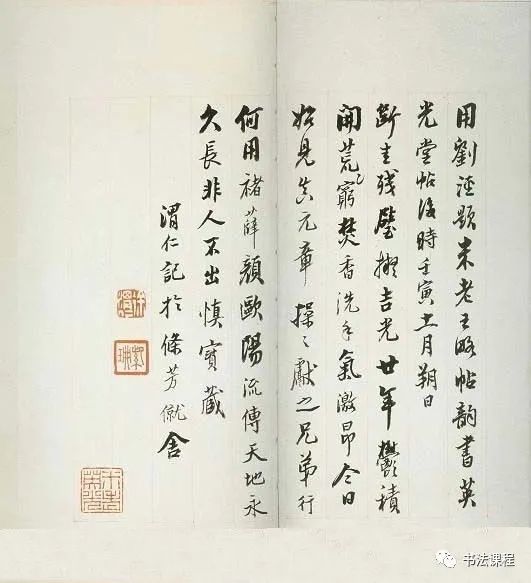 用劉涇題米老王略帖韵書英
光堂帖後時壬寅十一月朔日
斷圭殘璧吉光廿年鬱積
開荒窮焚香洗手氣激昂今日
始見真元章操〻獻之兄弟行
何用褚薛顏歐陽流傳天地永
久長非人不出慎寶藏
渭仁記於條芳僦舍
书法课程